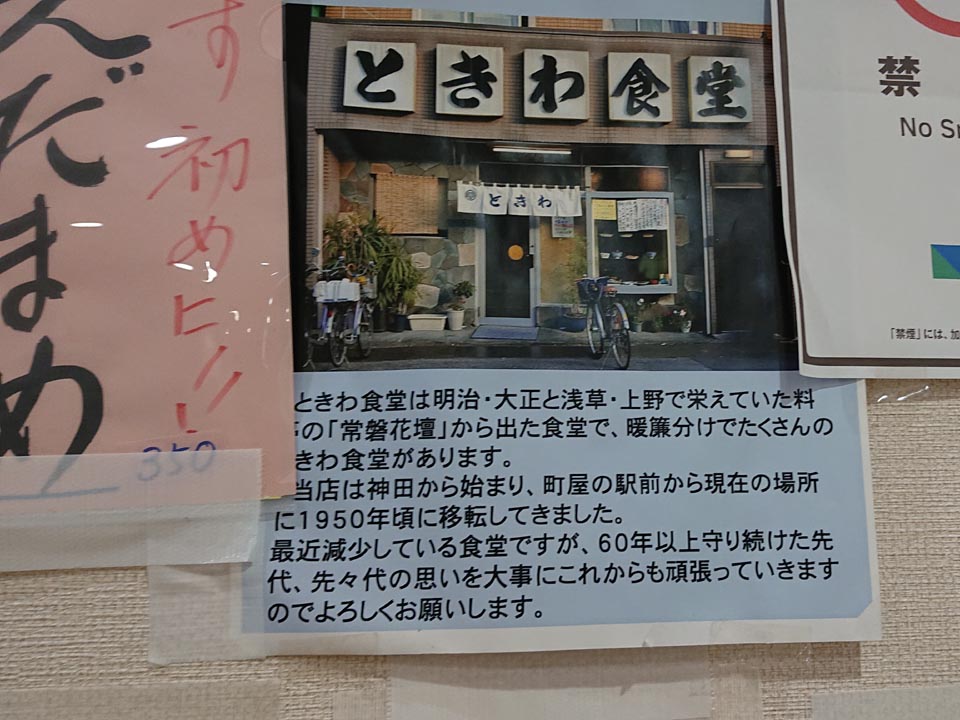 えだまめ
す 初めヒノ
350
ときわ食堂
ときわ
禁
No
「禁煙」には、加
ときわ食堂は明治・大正と浅草・上野で栄えていた料
の「常磐花壇」から出た食堂で、暖簾分けでたくさんの
きわ食堂があります。
当店は神田から始まり、町屋の駅前から現在の場所
に1950年頃に移転してきました。
最近減少している食堂ですが、60年以上守り続けた先
代、先々代の思いを大事にこれからも頑張っていきます
のでよろしくお願いします。